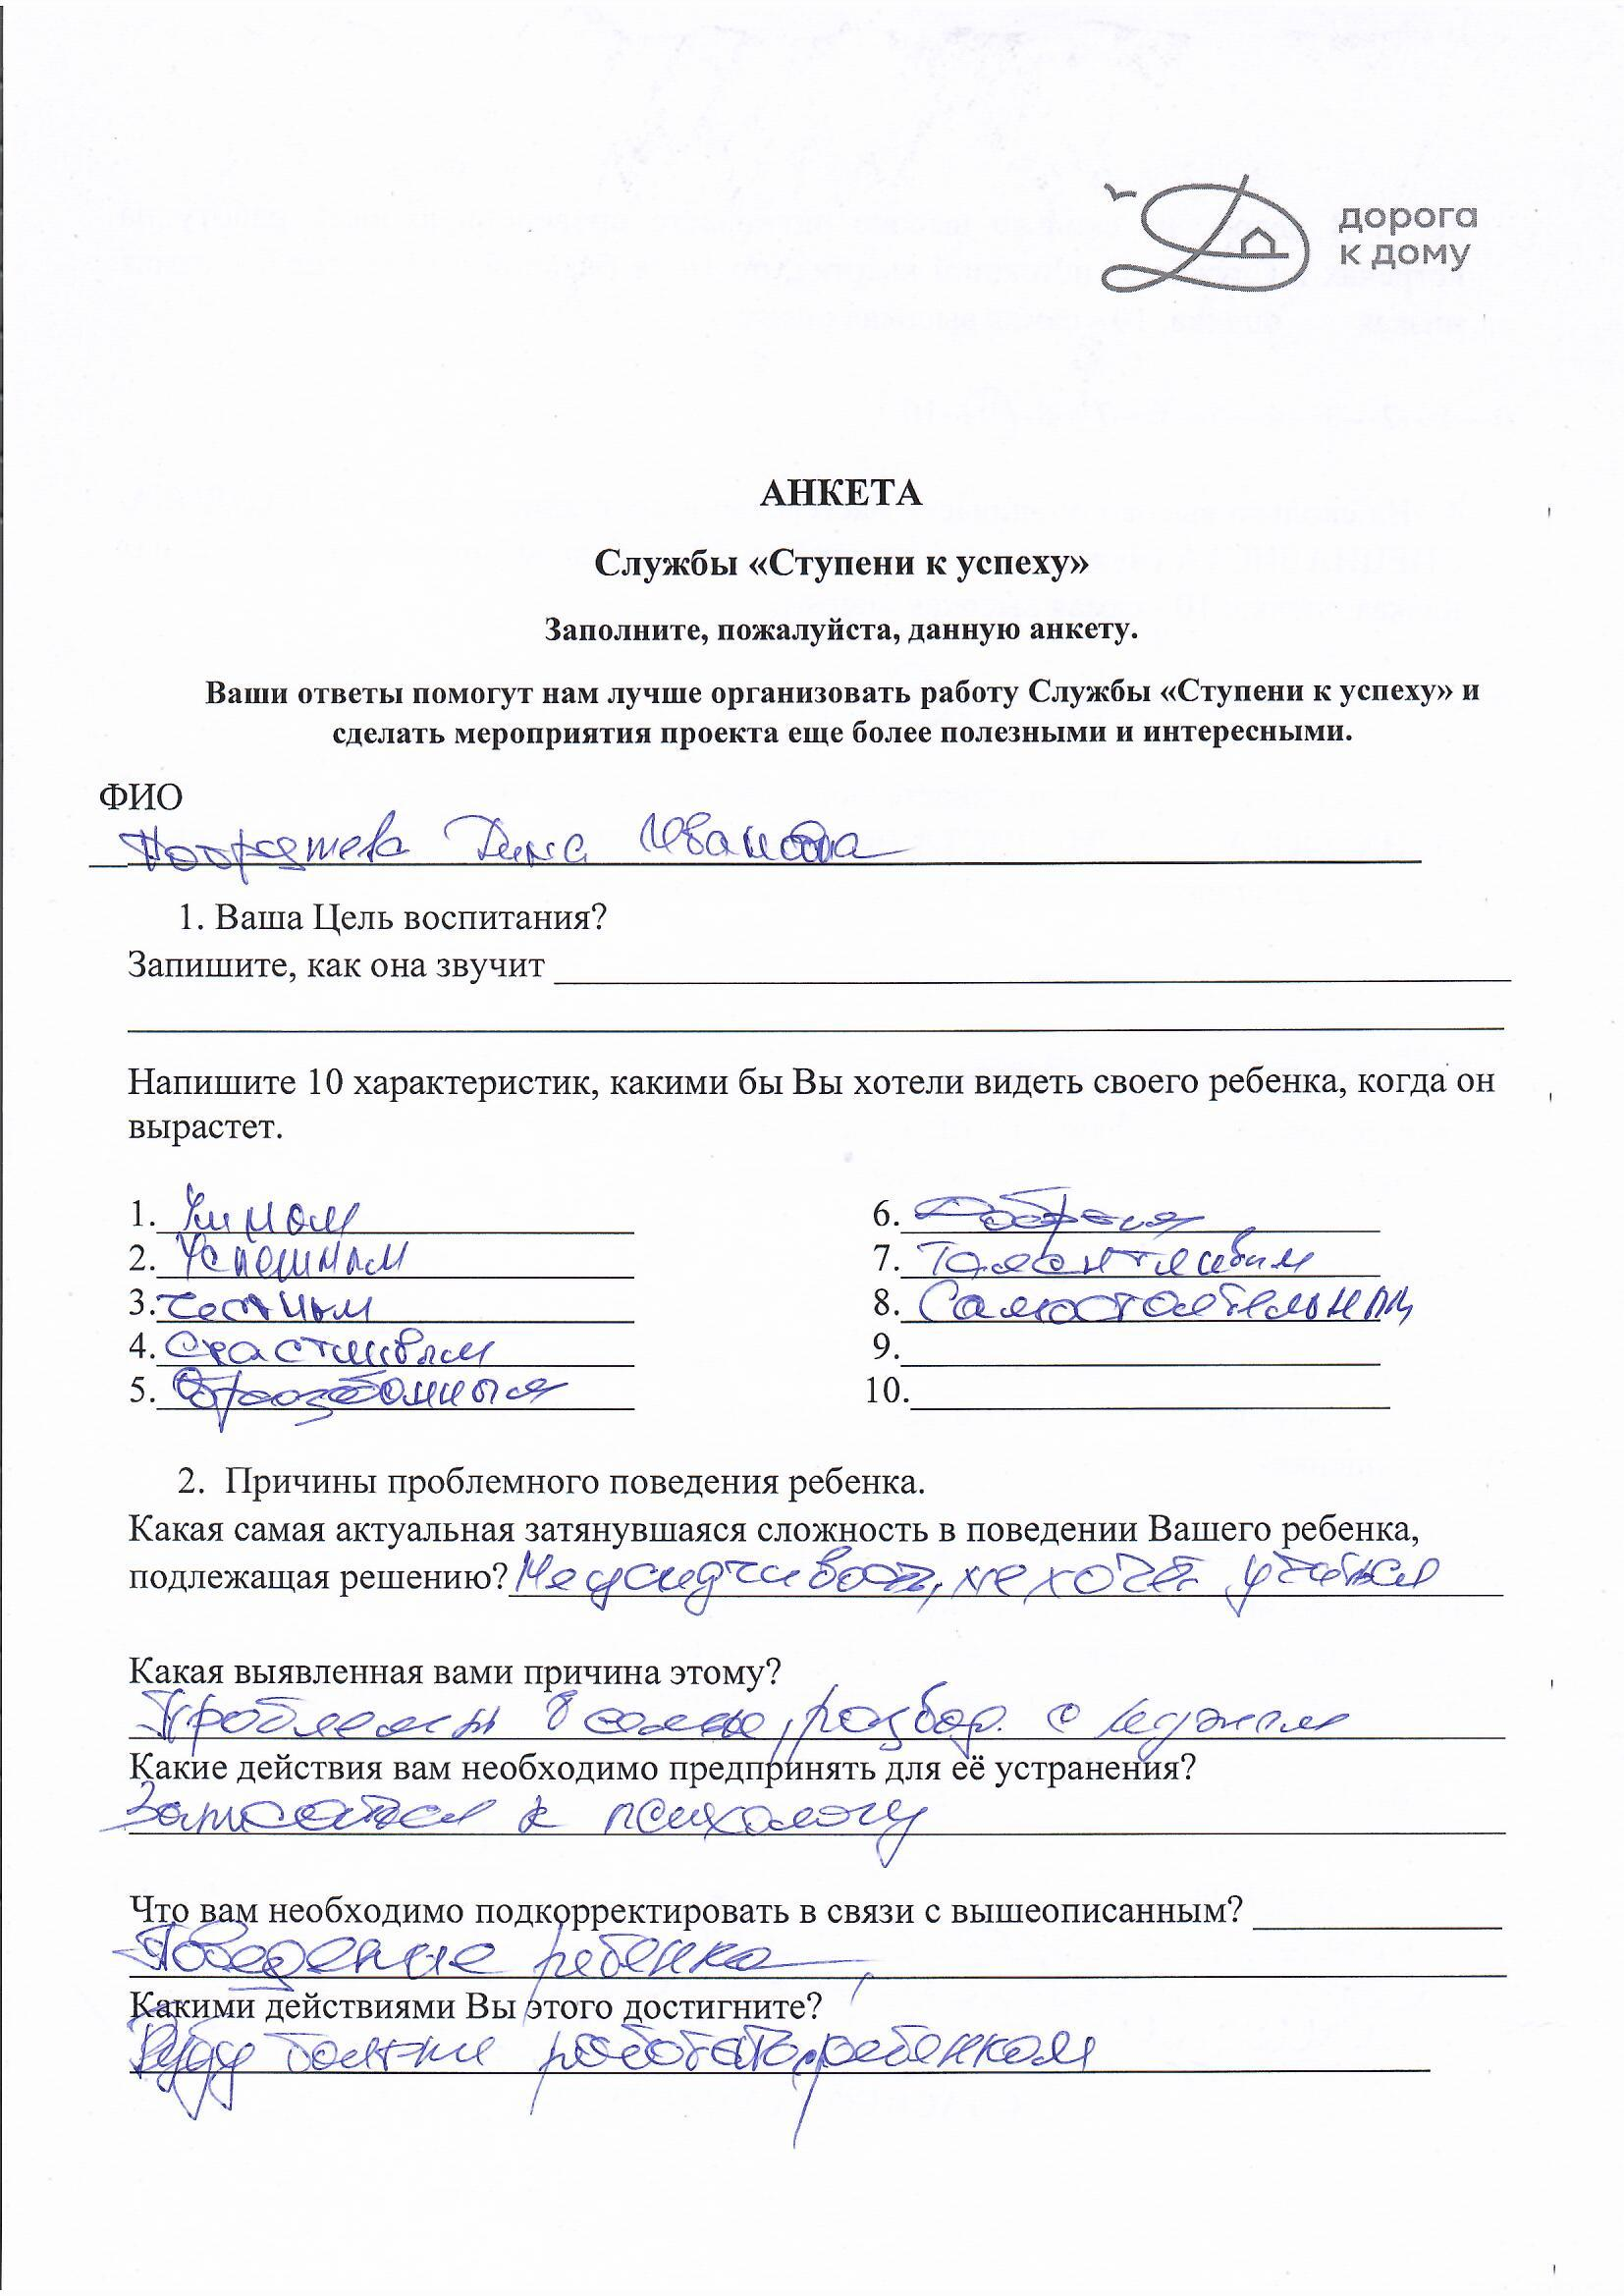 дорога
к дому
АНКЕТА
Службы «Ступени к успеху»
Заполните, пожалуйста, данную анкету.
Ваши ответы помогут нам лучше организовать работу Службы «Ступени к успеху» и
сделать мероприятия проекта еще более полезными и интересными.
ФИО
Дина Ивановна
1. Ваша Цель воспитания?
Запишите, как она звучит
Напишите 10 характеристик, какими бы Вы хотели видеть своего ребенка, когда он
вырастет.
1. Умным
2. Успешным
3. Честным
4. Счастливым
5. Образованным
6. Добрым
7. Талантливым
8. Самостоятельным
9.
10.
2. Причины проблемного поведения ребенка.
Какая самая актуальная затянувшаяся сложность в поведении Вашего ребенка,
подлежащая решению? Неусидчивость, не хочет учиться
Какая выявленная вами причина этому?
Проблемы в семье, развод с мужем
Какие действия вам необходимо предпринять для её устранения?
Записаться к психологу
Что вам необходимо подкорректировать в связи с вышеописанным?
Поведение ребенка
Какими действиями Вы этого достигните?
Буду работать ребенком